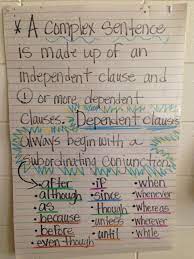 * A complex sentence
is made up of an
independent clause and
① or more dependent
clauses. Dependent clauses
always begin with a
subordinating conjunction.
• after • if • when
• although • since • whenever
• as • though • whereas
• because • unless • wherever
• before • until • while
• even though